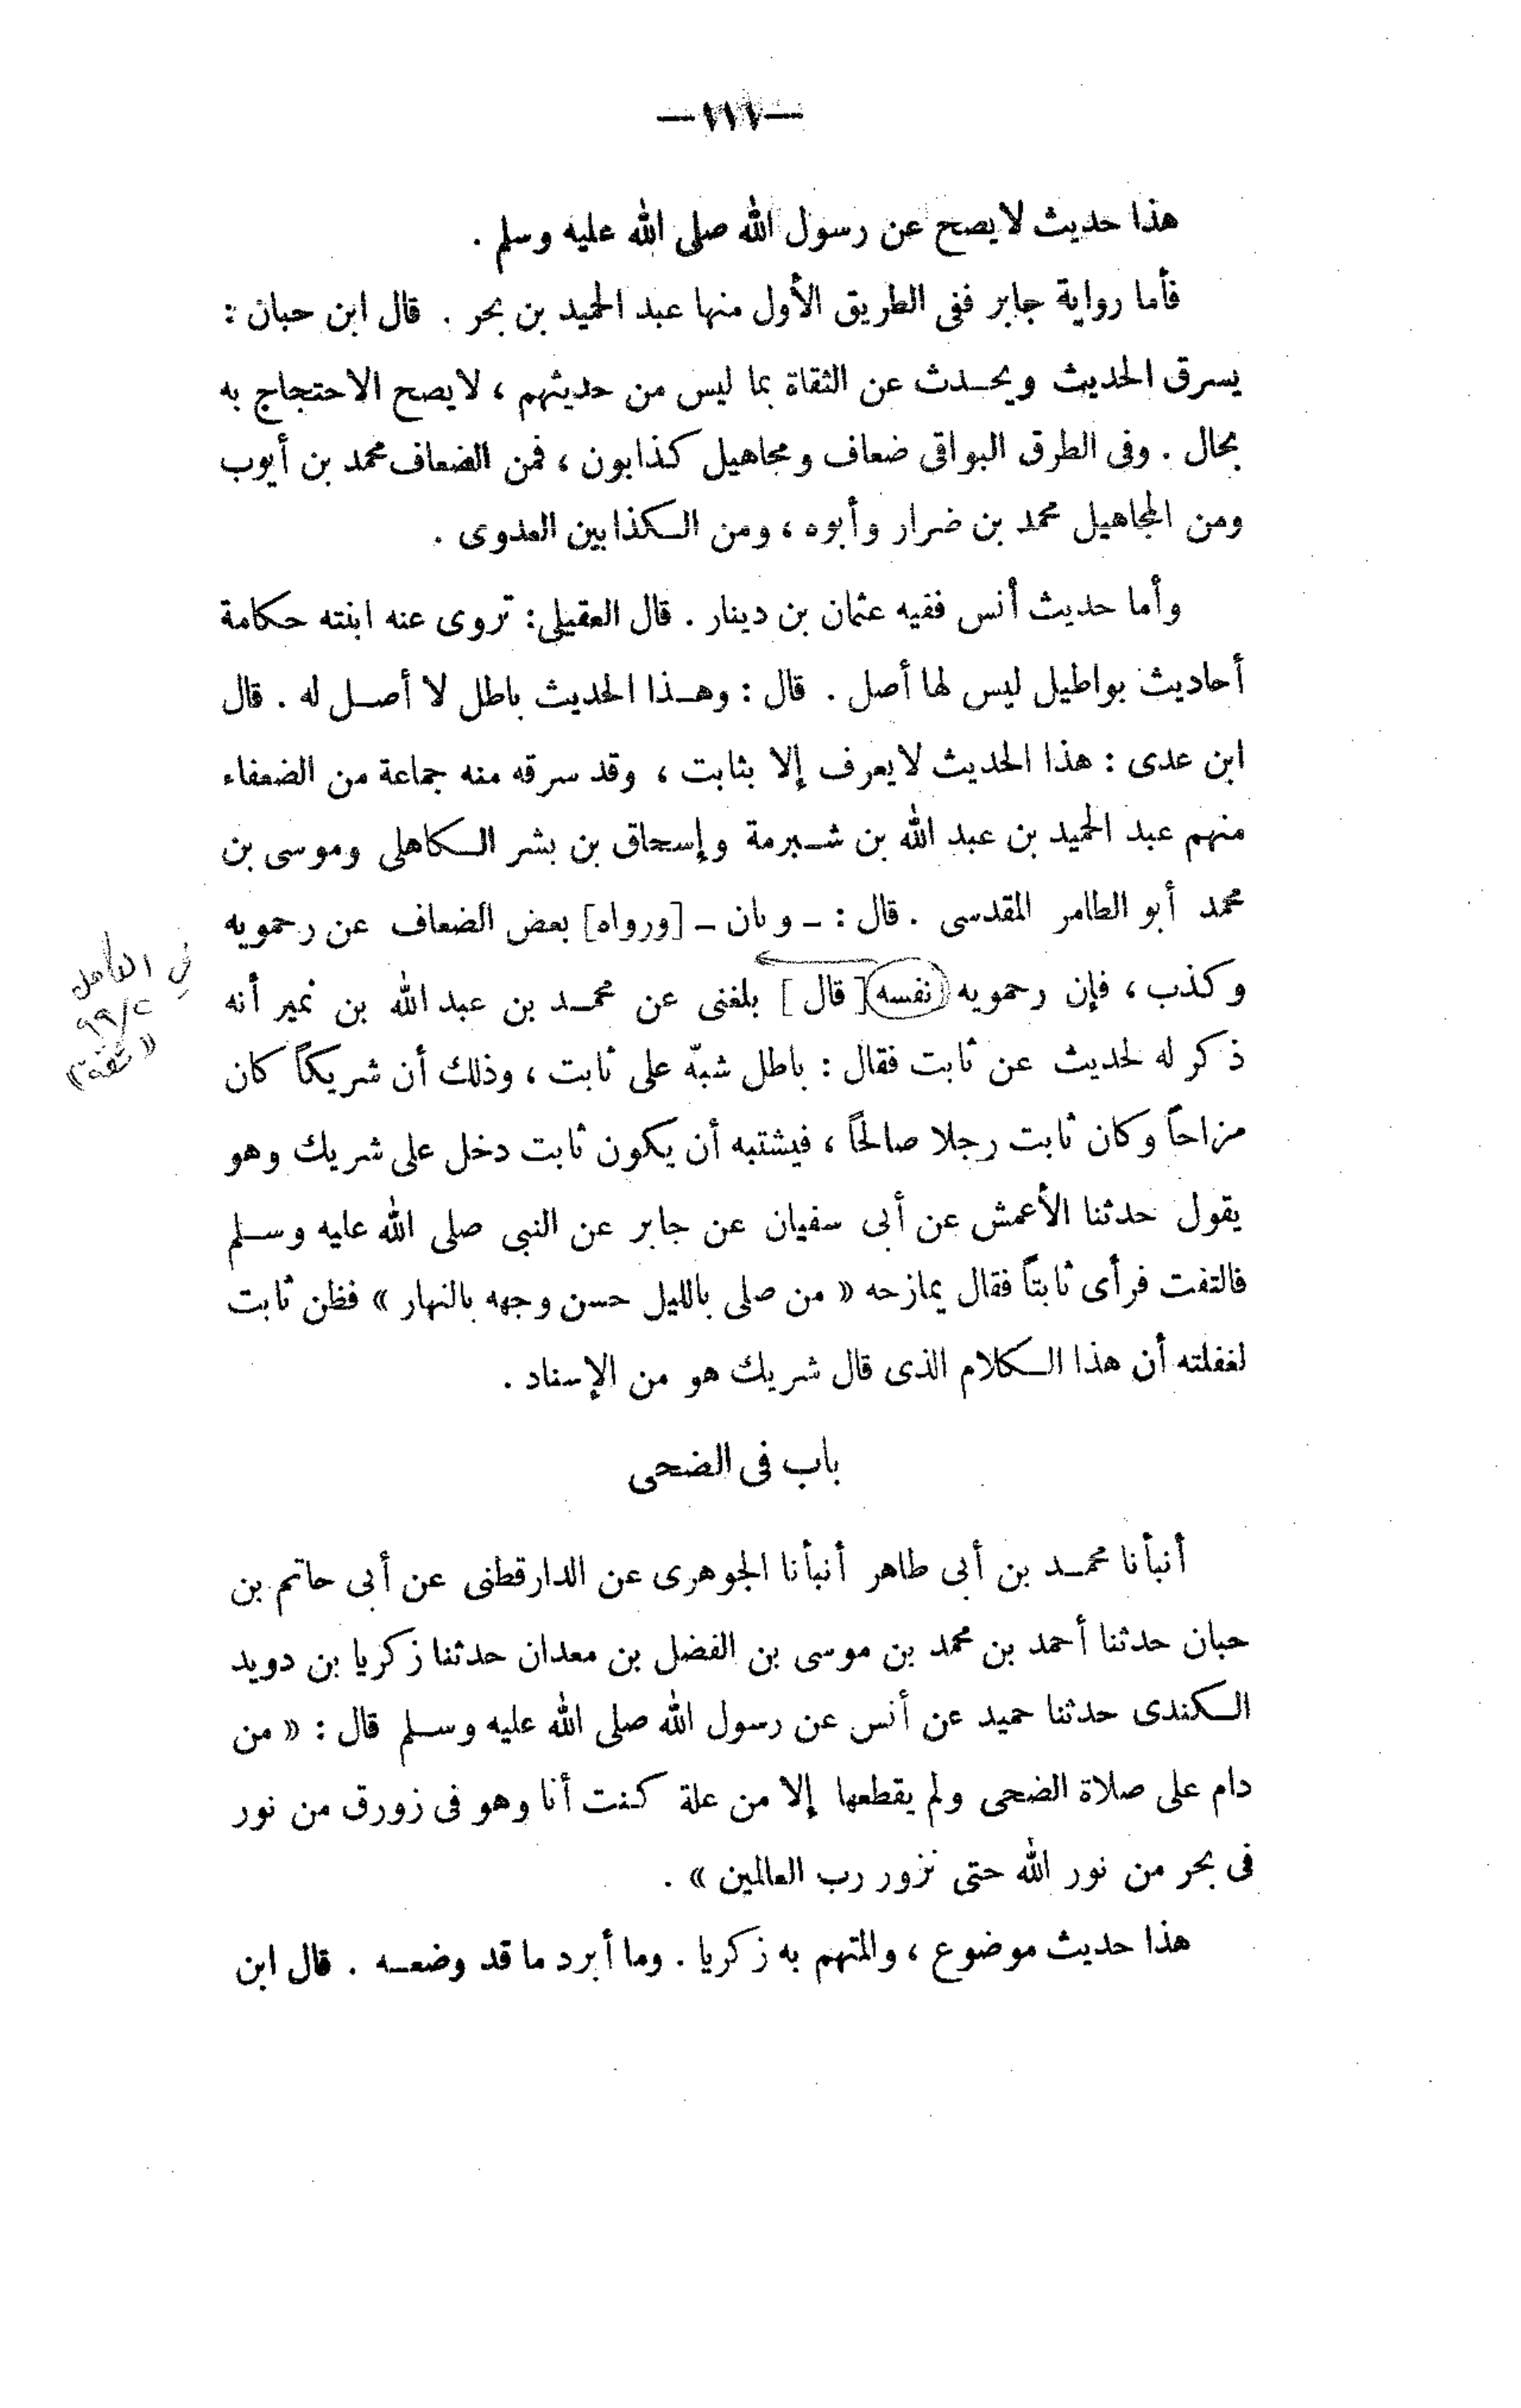 —١١١—
هذا حديث لايصح عن رسول الله صلى الله عليه وسلم .
فأما رواية جابر ففى الطريق الأول منها عبد الحميد بن بحر . قال ابن حبان :
يسرق الحديث ويحـدث عن الثقاة بما ليس من حديثهم ، لايصح الاحتجاج به
بحال . وفى الطرق البواقى ضعاف ومجاهيل كذابون ، فمن الضعاف محمد بن أيوب
ومن المجاهيل محمد بن ضرار وأبوه ، ومن الـكذابين العدوى .
وأما حديث أنس ففيه عثمان بن دينار . قال العقيلى : تروى عنه ابنته حكامة
أحاديث بواطيل ليس لها أصل . قال : وهـذا الحديث باطل لا أصـل له . قال
ابن عدى : هذا الحديث لايعرف إلا بثابت ، وقد سرقه منه جماعة من الضعفاء
منهم عبد الحميد بن عبد الله بن شـبرمة وإسحاق بن بشر الـكاهلى وموسى بن
محمد أبو الطامر المقدسى . قال : ـ و بان ـ [ورواه] بعض الضعاف عن رحمويه
وكذب ، فإن رحمويه (نفسه) [ قال ] بلغنى عن محمـد بن عبد الله بن نمير أنه
فى الكامل
٩٩/٢
« ثقة »
ذكر له لحديث عن ثابت فقال : باطل شبّه على ثابت ، وذلك أن شريكاً كان
مزاحاً وكان ثابت رجلا صالحاً ، فيشتبه أن يكون ثابت دخل على شريك وهو
يقول حدثنا الأعمش عن أبى سفيان عن جابر عن النبى صلى الله عليه وسـلم
فالتفت فرأى ثابتاً فقال يمازحه « من صلى بالليل حسن وجهه بالنهار » فظن ثابت
لغفلته أن هذا الـكلام الذى قال شريك هو من الإسناد .
باب فى الضحى
أنبأنا محمـد بن أبى طاهر أنبأنا الجوهرى عن الدارقطنى عن أبى حاتم بن
حبان حدثنا أحمد بن محمد بن موسى بن الفضل بن معدان حدثنا زكريا بن دويد
الـكندى حدثنا حميد عن أنس عن رسول الله صلى الله عليه وسـلم قال : « من
دام على صلاة الضحى ولم يقطعها إلا من علة كنت أنا وهو فى زورق من نور
فى بحر من نور الله حتى نزور رب العالمين » .
هذا حديث موضوع ، والمتهم به زكريا . وما أبرد ما قد وضعـه . قال ابن